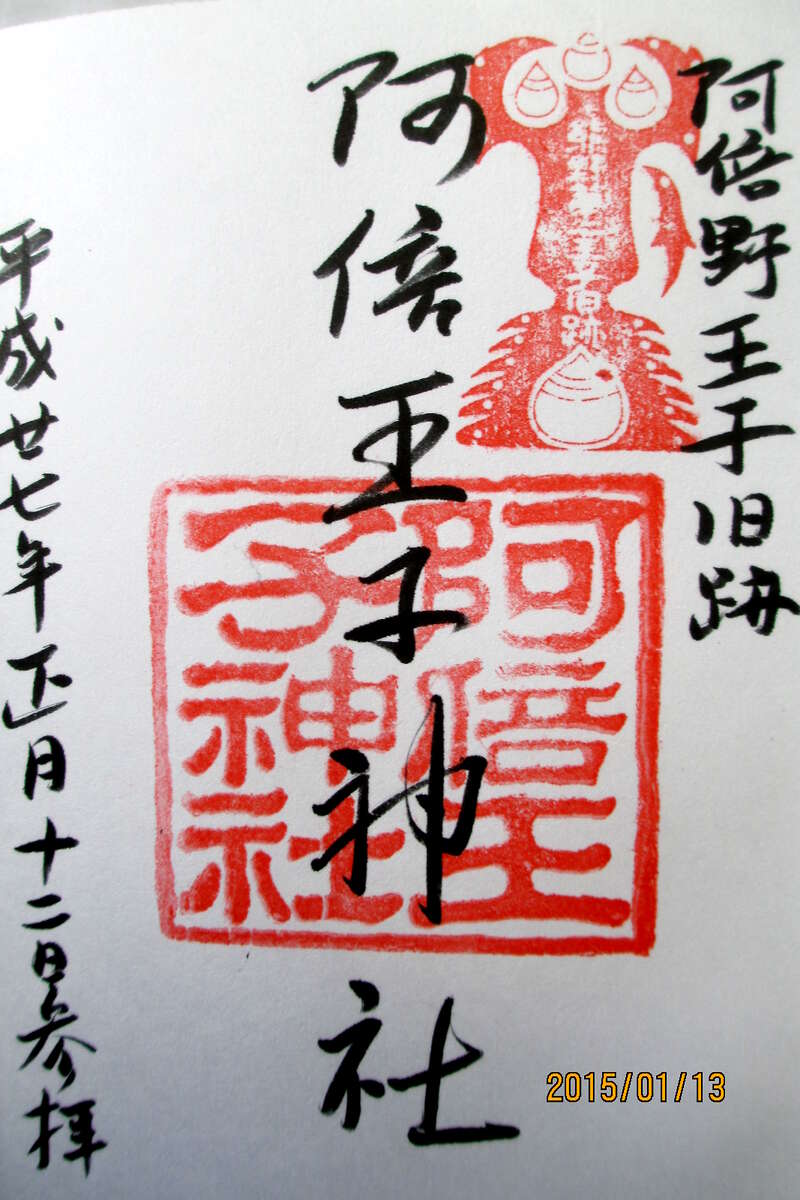 阿倍野王子旧跡
阿倍王子神社
阿倍王
子神社
平成廿七年正月十二日参拝
2015/01/13